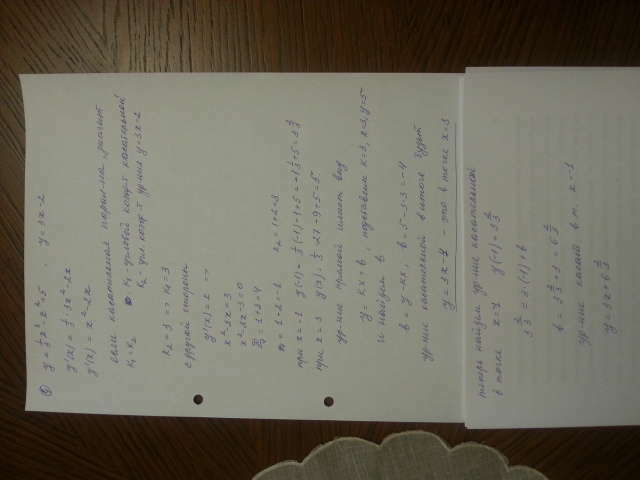 y = 1/3 x³ - x² + 5, y = 3x - 2
y'(x) = 1/3 · 3x² - 2x
y'(x) = x² - 2x
если касательная парал-на, значит
k₁ = k₂ k₁ - угловой коэф-т касательной
k₂ - угл. коэф-т ур-ния y = 3x - 2
k₂ = 3 => k₁ = 3
с другой стороны
y'(x) = k =>
x² - 2x = 3
x² - 2x - 3 = 0
= 1 + 3 = 4
= 1 - 2 = -1 x₂ = 1 + 2 = 3
при x = -1 y(-1) = 1/3 (-1) - 1 + 5 = 3 2/3
при x = 3 y(3) = 1/3 · 27 - 9 + 5 = 5
ур-ние прямой имеет вид
y = kx + b, подставим k = 3, x = 3, y = 5
и найдем b
b = y - kx, b = 5 - 3·3 = -4
ур-ние касательной в итоге будет
y = 3x - 4 - это в точке x = 3
теперь найдем ур-ние касательной
в точке y(-1) = 3 2/3
3 2/3 = 3·(-1) + b
b = 3 2/3 + 3 = 6 2/3
ур-ние касат. в т. x = -1
y = 3x + 6 2/3